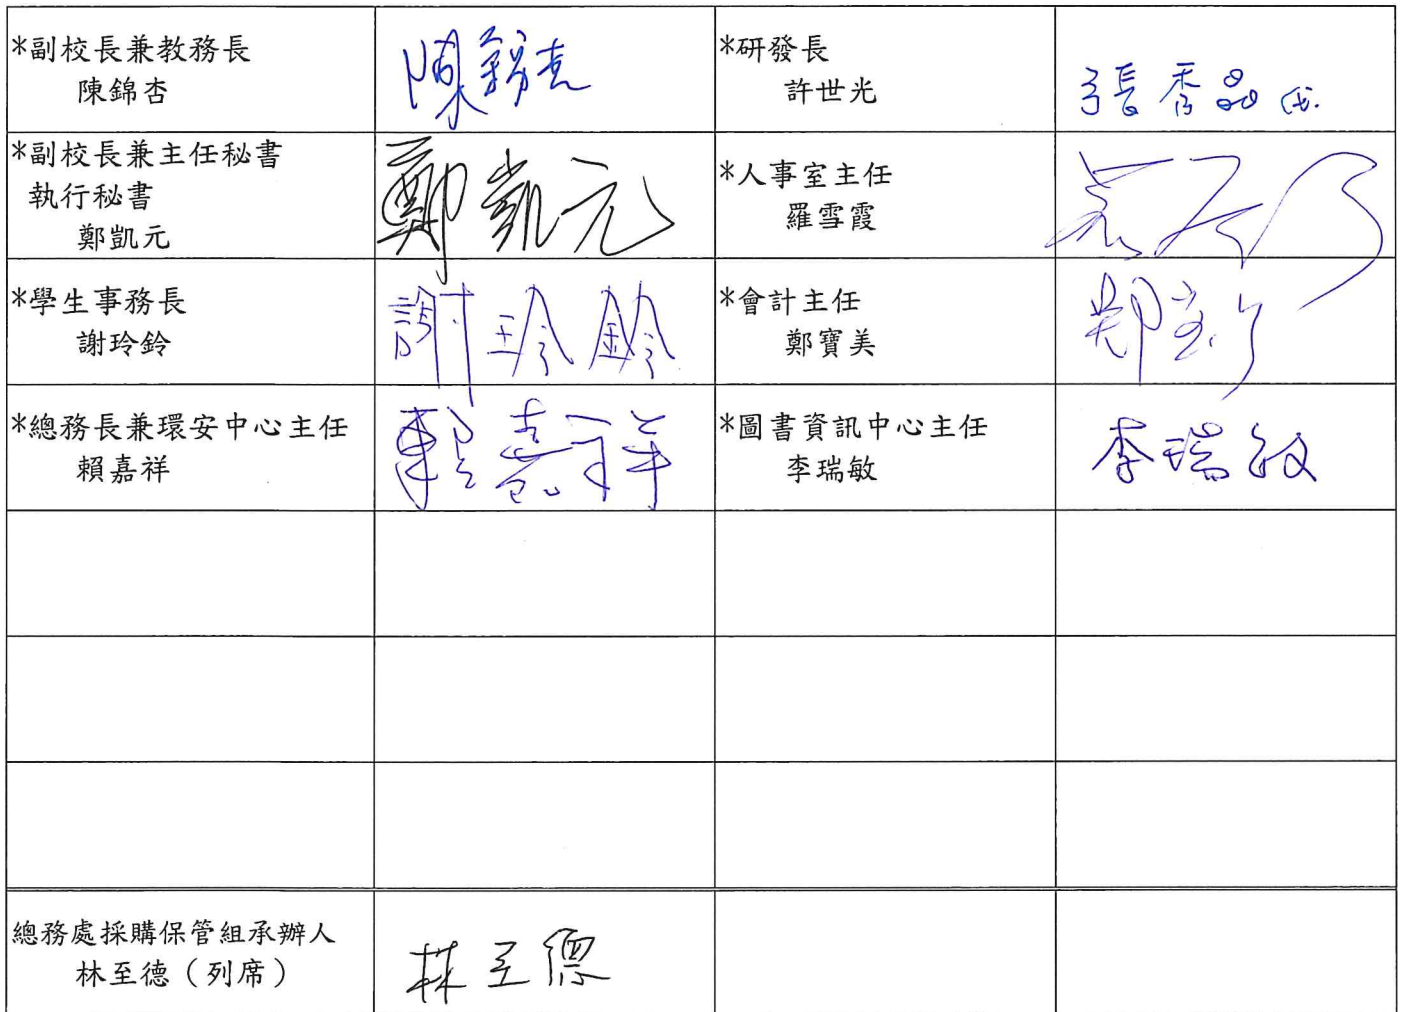 *副校長兼教務長
陳錦杏
陳錦杏
*研發長
許世光
張秀晶代.
*副校長兼主任秘書
執行秘書
鄭凱元
鄭凱元
*人事室主任
羅雪霞
*學生事務長
謝玲鈴
謝玲鈴
*會計主任
鄭寶美
*總務長兼環安中心主任
賴嘉祥
賴嘉祥
*圖書資訊中心主任
李瑞敏
李瑞敏
總務處採購保管組承辦人
林至德（列席）
林至德